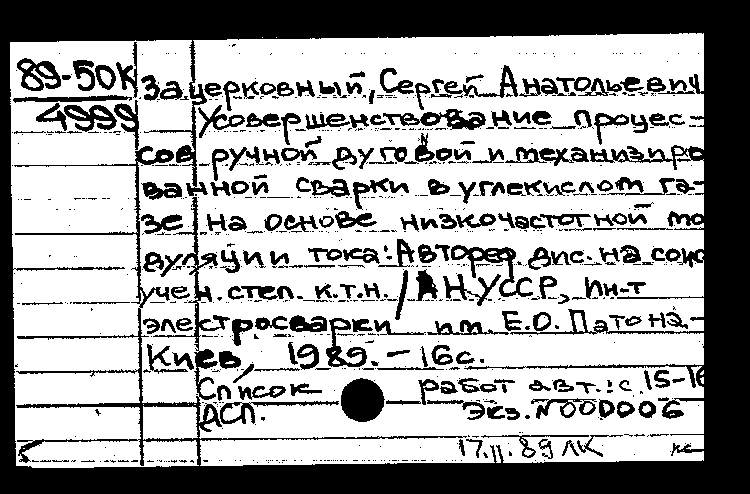 89-50К Зацерковный, Сергей Анатольевич
4999 Усовершенствование процес-
сов ручной дуговой и механизиро
ванной сварки в углекислом га-
зе на основе низкочастотной мо
дуляции тока: Автореф. дис. на соис
учен. степ. к.т.н. / АН УССР, Ин-т
электросварки им. Е.О. Патона.-
Киев, 1989. - 16с.
Список работ авт.: с. 15-16
ДСП. Экз. N 000006
17.11.89 ЛК